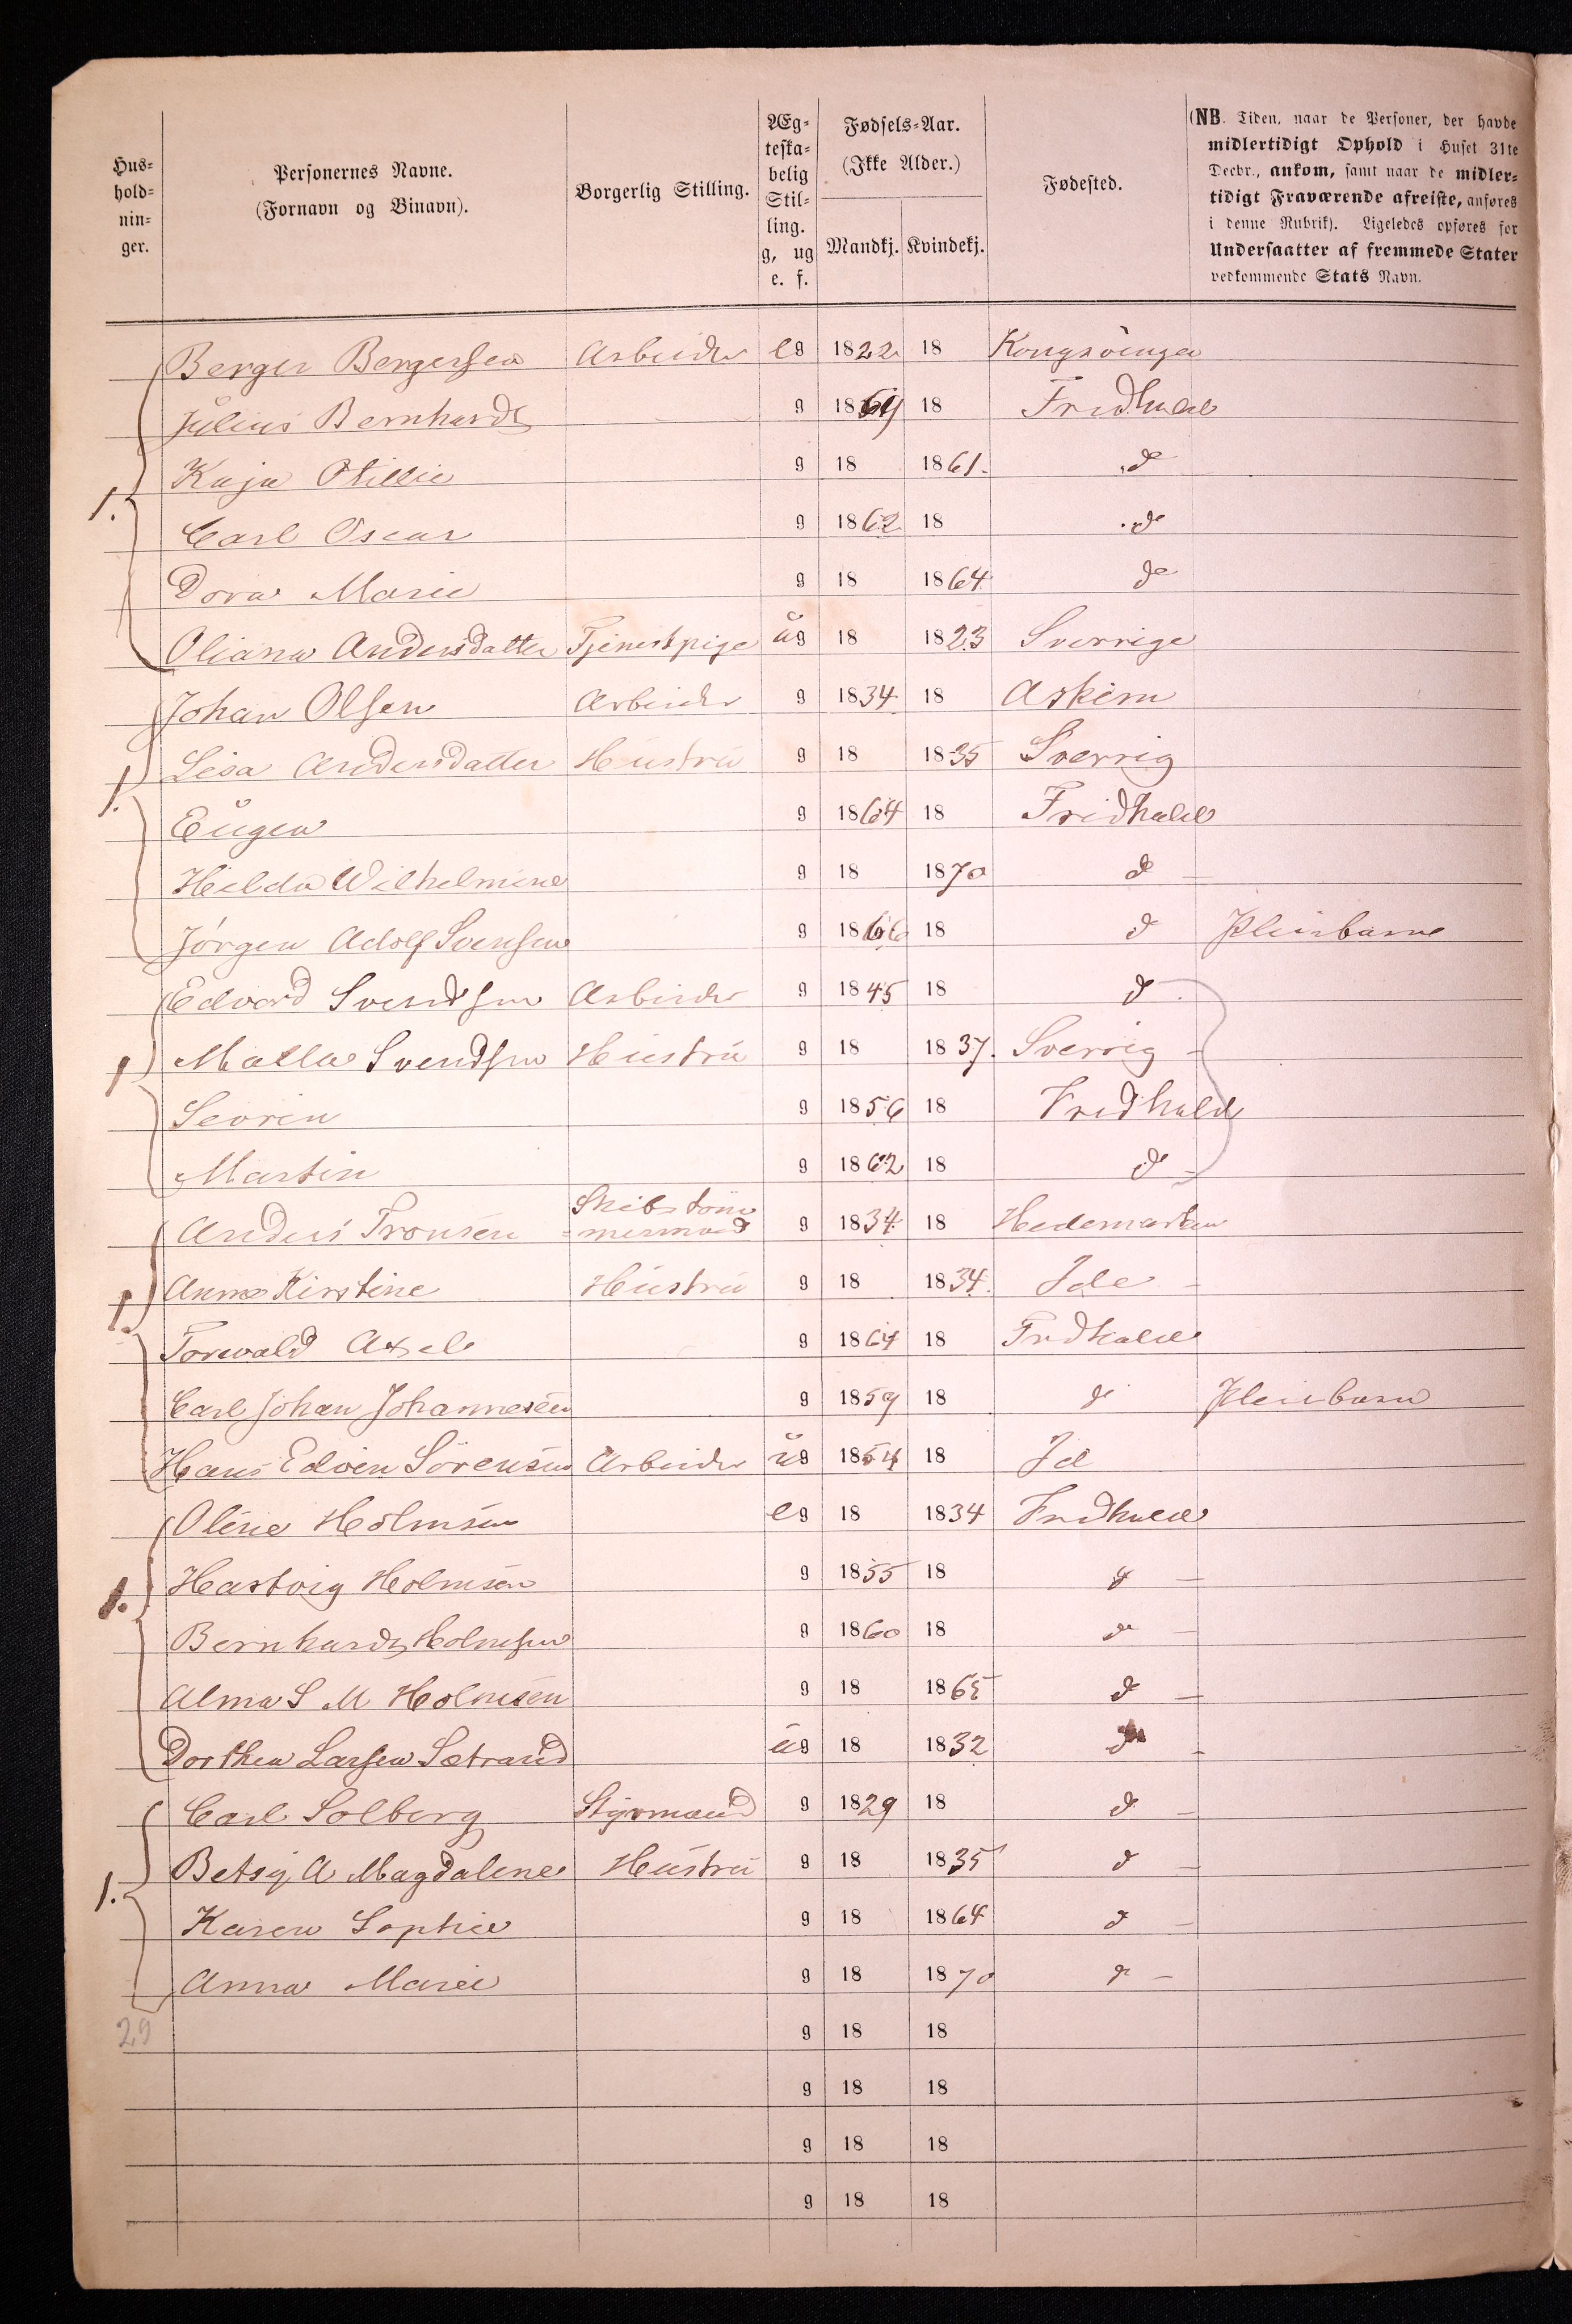 Hus-
hold-
nin-
ger.
Personernes Navne.
(Fornavn og Binavn).
Borgerlig Stilling.
Æg-
teska-
belig
Stil-
ling.
g, ug
e. f.
Fødsels-Aar.
(Ikke Alder.)
Mandkj. Kvindekj.
Fødested.
(NB. Tiden, naar de Personer, der havde
midlertidigt Ophold i Huset 31te
Decbr., ankom, samt naar de midler-
tidigt Fraværende afreiste, anføres
i denne Rubrik). Ligeledes opføres for
Undersaatter af fremmede Stater
vedkommende Stats Navn.
Berger Bergersen Arbeider eg 1822 18 Kongsvinger
Julius Bernhardt g 18 18 Fridhald
Kaja Otillie g 18 1861. d
1.
Carl Oscar g 1862 18 d
Dora Marie g 18 1864 d
Oliana Andersdatter Tjenestpige ug 18 1823 Sverrige
Johan Olsen Arbeider g 1834 18 Askim
1. Lisa Andersdatter Hustru g 18 1835 Sverrig
Eugen g 1864 18 Fridhald
Hilda Wilhelmine g 18 1870 d
Jørgen Adolf Svensen g 1866 18 d Pleiebarn
Edvard Svendsen Arbeider g 1845 18 d
1 Malla Svendsen Hustru g 18 1837. Sverrig -
Sevrin g 1856 18 Fridhald
Martin g 1862 18 d -
Anders Tronsen Skibstøm-
=mermand g 1834 18 Hedemarken
1 Anne Kirstine Hustru g 18 1834. Ide -
Torwald Axel g 1864 18 Fridhald
Carl Johan Johannesen g 1859 18 d Pleiebarn
Hans Edvin Sörensen Arbeider ug 1854 18 Id
Oline Holmsen eg 18 1834 Fridhald
1. Hartvig Holmsen g 1855 18 d -
Bernhardt Holmsen g 1860 18 d -
Alma S M Holmsen g 18 1865 d -
Dorthea Larsen Sætrand ug 18 1832 d -
Carl Solberg Styrmand g 1829 18 d -
Betsy A Magdalene Hustru g 18 1835 d -
1.
Karen Sophie g 18 1864 d -
Anna Marie g 18 1870 d -
29 g 18 18
g 18 18
g 18 18
g 18 18